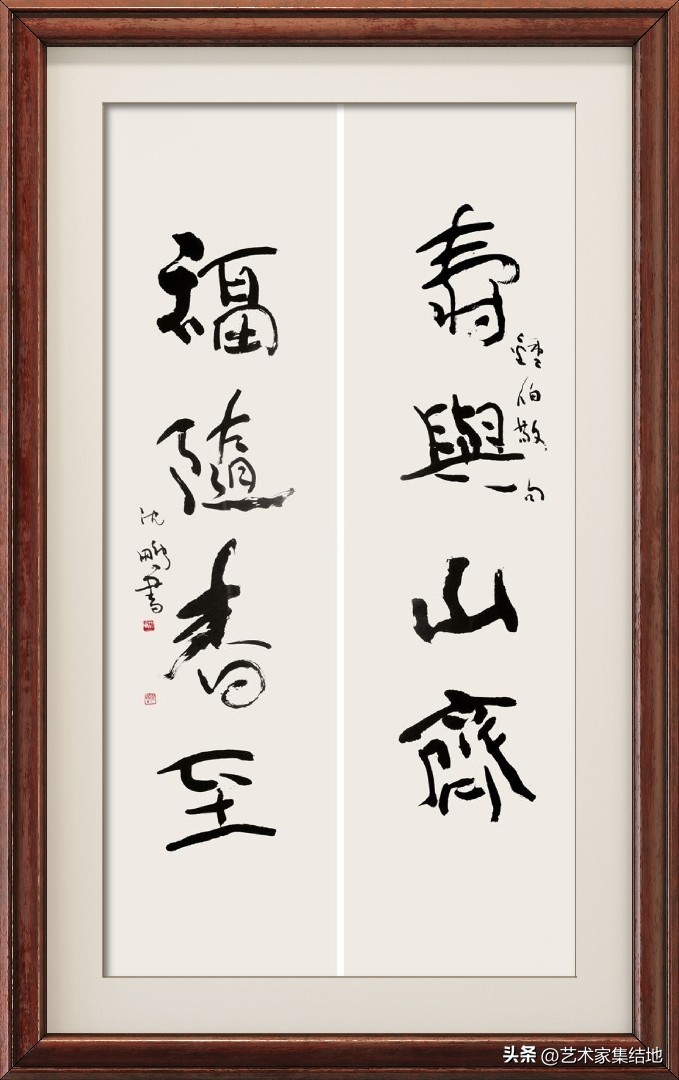 壽與山齊
鍾伯敬句
福隨春至
沈鵬書
头条 @艺术家集结地